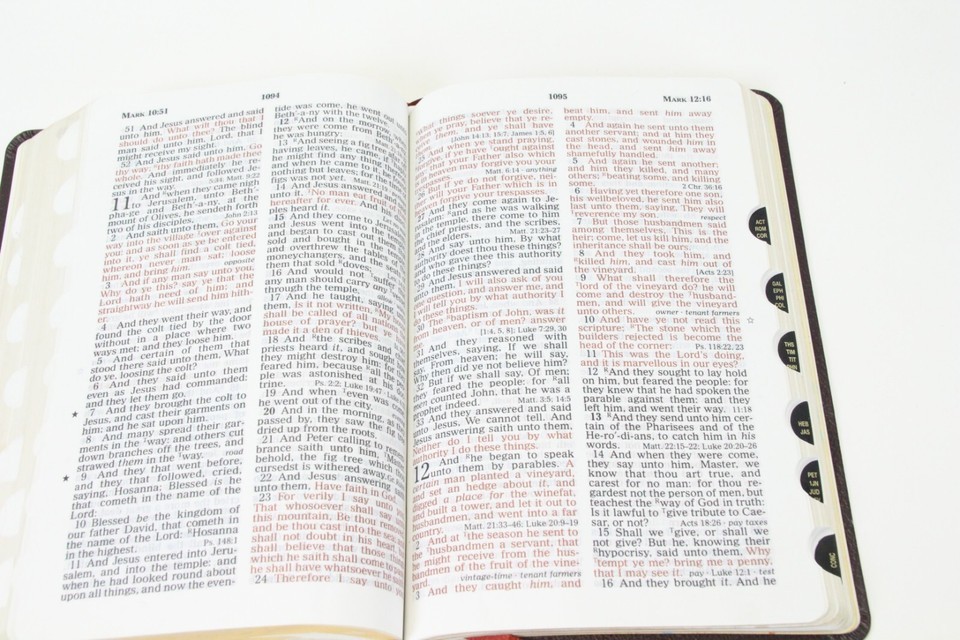 MARK 10:51
1094
51 And Jesus answered and said
unto him, What wilt thou that I
should do unto thee? The blind
man said unto him, Lord, that I
might receive my sight.
52 And Jesus said unto him, Go
thy way; thy faith hath made thee
whole. And immediately he re-
ceived his sight, and followed Je-
sus in the way. Matt. 9:22
11 And when they came nigh
to Jerusalem, unto Beth'-
pha-ge and Beth'-a-ny, at the
mount of Olives, he sendeth forth
two of his disciples, John 2:13
2 And saith unto them, Go your
way into the village over against
you: and as soon as ye be entered
into it, ye shall find a colt tied,
whereon never man sat; loose
him, and bring him. opposite
3 And if any man say unto you,
Why do ye this? say ye that the
Lord hath need of him; and
straightway he will send him hith-
er.
4 And they went their way, and
found the colt tied by the door
without in a place where two
ways met; and they loose him.
5 And certain of them that
stood there said unto them, What
do ye, loosing the colt?
6 And they said unto them
even as Jesus had commanded:
and they let them go.
7 And they brought the colt to
Jesus, and cast their garments on
him; and he sat upon him.
8 And many spread their gar-
ments in the way: and others cut
down branches off the trees, and
strawed them in the way. road
9 And they that went before,
and they that followed, cried,
saying, Hosanna; Blessed is he
that cometh in the name of the
Lord: Ps. 148:1
10 Blessed be the kingdom of
our father David, that cometh in
the name of the Lord: Hosanna
in the highest.
11 And Jesus entered into Jeru-
salem, and into the temple: and
when he had looked round about
upon all things, and now the even-
tide was come, he went out
Beth'-a-ny with the twelve.
12 And on the morrow,
they were come from
he was hungry:
13 And seeing a fig tree
having leaves, he came, if
he might find any thing
and when he came to it, he
nothing but leaves; for
figs was not yet. Matt. 21
14 And Jesus answered
unto it, No man eat fruit
hereafter for ever. And
ples heard it.
15 And they come to
and Jesus went into the
and began to cast out
sold and bought in the
and overthrew the tables
moneychangers, and the
them that sold doves;
16 And would not suffer
any man should carry any
through the temple. allow
17 And he taught, saying
them, Is it not written,
shall be called of all nations
house of prayer? but ye
made it a den of thieves.
18 And the scribes and
priests heard it, and sought
they might destroy him: for
feared him, because all the
ple was astonished at his
rine. Ps. 2:2; Luke 19:47
19 And when even was
he went out of the city.
20 And in the morning,
passed by, they saw the fig
dried up from the roots.
21 And Peter calling to
brance saith unto him,
behold, the fig tree which
cursedst is withered away.
22 And Jesus answering
unto them, Have faith in God
23 For verily I say unto
That whosoever shall say
this mountain, Be thou removed
and be thou cast into the sea
shall not doubt in his heart,
shall believe that those
which he saith shall come
he shall have whatsoever he
24 Therefore I say unto
1095
MARK 12:16
what things soever ye desire,
when ye pray, believe that ye re-
them, and ye shall have
[John 14:13, 15:7, James 1:5, 6]
25 And when ye stand praying,
forgive, if ye have ought against
that your Father also which
in heaven may forgive you your
Matt. 6:14 · anything
26 But if ye do not forgive, nei-
will your Father which is in
heaven forgive your trespasses.
27 And they come again to Je-
and as he was walking
in the temple, there come to him
the chief priests, and the scribes,
and the elders, Matt. 21:23–27
28 And say unto him, By what
authority doest thou these things?
and who gave thee this authority
to do these things?
29 And Jesus answered and said
unto them, I will also ask of you
one question, and answer me, and
I will tell you by what authority I
do these things.
30 The baptism of John, was it
from heaven, or of men? answer
[1:4, 5, 8]; Luke 7:29, 30
31 And they reasoned with
themselves, saying, If we shall
say, From heaven; he will say,
Why then did ye not believe him?
32 But if we shall say, Of men;
they feared the people: for all
men counted John, that he was a
prophet indeed. Matt. 3:5; 14:5
33 And they answered and said
unto Jesus, We cannot tell. And
Jesus answering saith unto them,
Neither do I tell you by what
authority I do these things.
12 And he began to speak
unto them by parables. A
certain man planted a vineyard,
and set an hedge about it, and
digged a place for the winefat,
and built a tower, and let it out to
husbandmen, and went into a far
country. Matt. 21:33–46; Luke 20:9–19
2 And at the season he sent to
the husbandmen a servant, that
he might receive from the hus-
bandmen of the fruit of the vine-
yard. vintage-time · tenant farmers
3 And they caught him, and
beat him, and sent him away
empty.
4 And again he sent unto them
another servant; and at him they
cast stones, and wounded him in
the head, and sent him away
shamefully handled.
5 And again he sent another;
and him they killed, and many
others; beating some, and killing
some. 2 Chr. 36:16
6 Having yet therefore one son,
his wellbeloved, he sent him also
last unto them, saying, They will
reverence my son. respect
7 But those husbandmen said
among themselves, This is the
heir; come, let us kill him, and the
inheritance shall be ours.
8 And they took him, and
killed him, and cast him out of
the vineyard. [Acts 2:23]
9 What shall therefore the
lord of the vineyard do? he will
come and destroy the husband-
men, and will give the vineyard
unto others. owner · tenant farmers
10 And have ye not read this
scripture; The stone which the
builders rejected is become the
head of the corner: Ps. 118:22, 23
11 This was the Lord's doing,
and it is marvellous in our eyes?
12 And they sought to lay hold
on him, but feared the people: for
they knew that he had spoken the
parable against them: and they
left him, and went their way. 11:18
13 And they send unto him cer-
tain of the Pharisees and of the
He-ro'-di-ans, to catch him in his
words. Matt. 22:15–22; Luke 20:20–26
14 And when they were come,
they say unto him, Master, we
know that thou art true, and
carest for no man: for thou re-
gardest not the person of men, but
teachest the way of God in truth:
Is it lawful to give tribute to Cae-
sar, or not? Acts 18:26 · pay taxes
15 Shall we give, or shall we
not give? But he, knowing their
hypocrisy, said unto them, Why
tempt ye me? bring me a penny,
that I may see it. pay · Luke 12:1 · test
16 And they brought it. And he
ACT
ROM
COR
GAL
EPH
PHI
COL
THS
TIM
TIT
PHM
HEB
JAS
PET
1JN
JUD
CONC